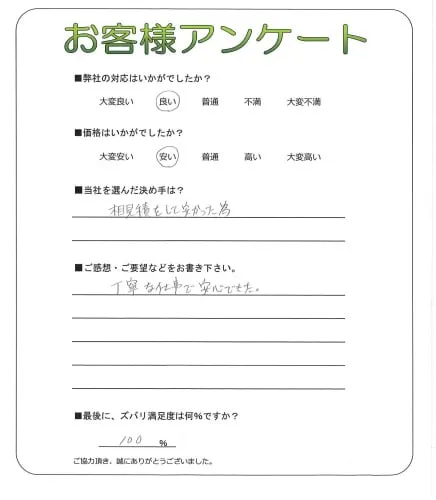 お客様アンケート
■弊社の対応はいかがでしたか？
大変良い 良い 普通 不満 大変不満
■価格はいかがでしたか？
大変安い 安い 普通 高い 大変高い
■当社を選んだ決め手は？
相見積をして安かった為
■ご感想・ご要望などをお書き下さい。
丁寧な仕事で安心でした。
■最後に、ズバリ満足度は何％ですか？
100 ％
ご協力頂き、誠にありがとうございました。